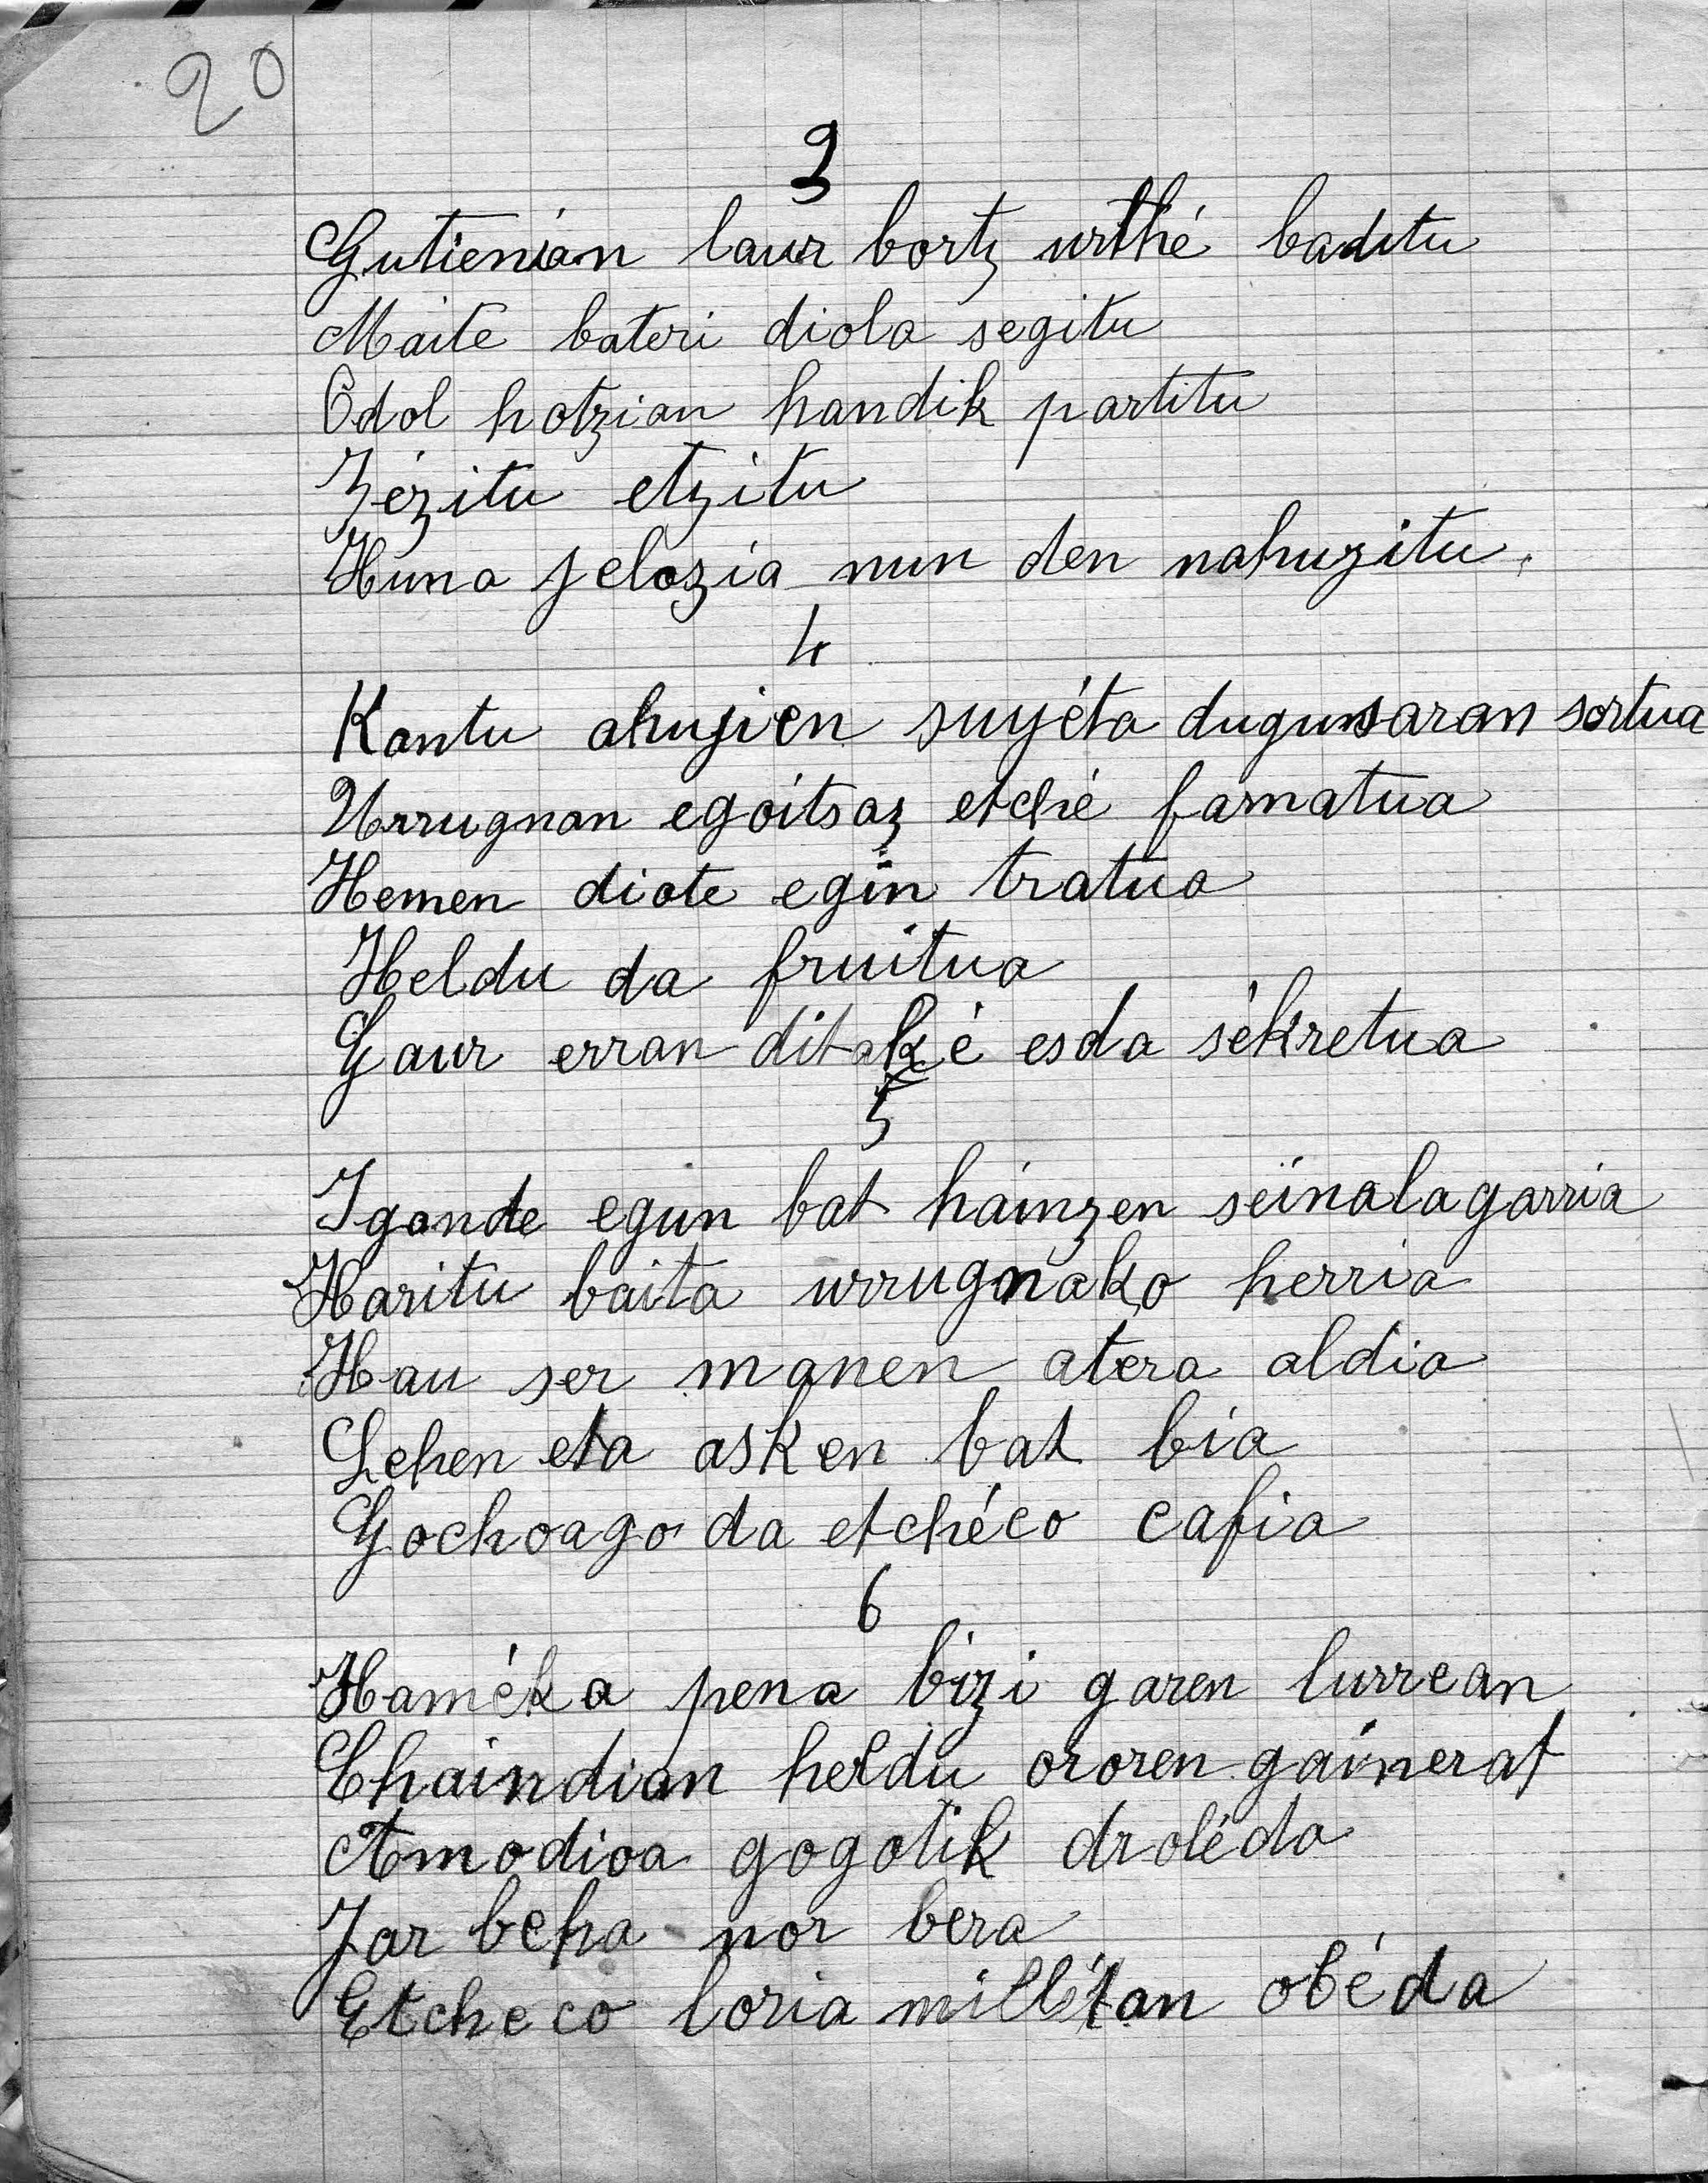 20
3
Gutienian laur bortz urthé baditu
Maite bateri diola segitu
Odol hotzian handik partitu
Zézitu etzitu
Huna jelozia nun den nahuzitu.
4
Kantu ahujien sujéta dugunsaran sortua
Urrugnan egoitsaz etché famatua
Hemen diote egin tratua
Heldu da fruitua
Gaur erran ditaké esda sékretua
5
Igande egun bat hainzen séinalagarria
Haritu baita urrugnako herria
Hau ser manen atera aldia
Lehen eta asken bat bia
Gochoago da etchéco cafia
6
Haméka pena bizi garen lurrean
Chaindian heldu ororen gainerat
Amodioa gogotik droléda
Jar beha nor bera
Etcheco loria millétan obéda